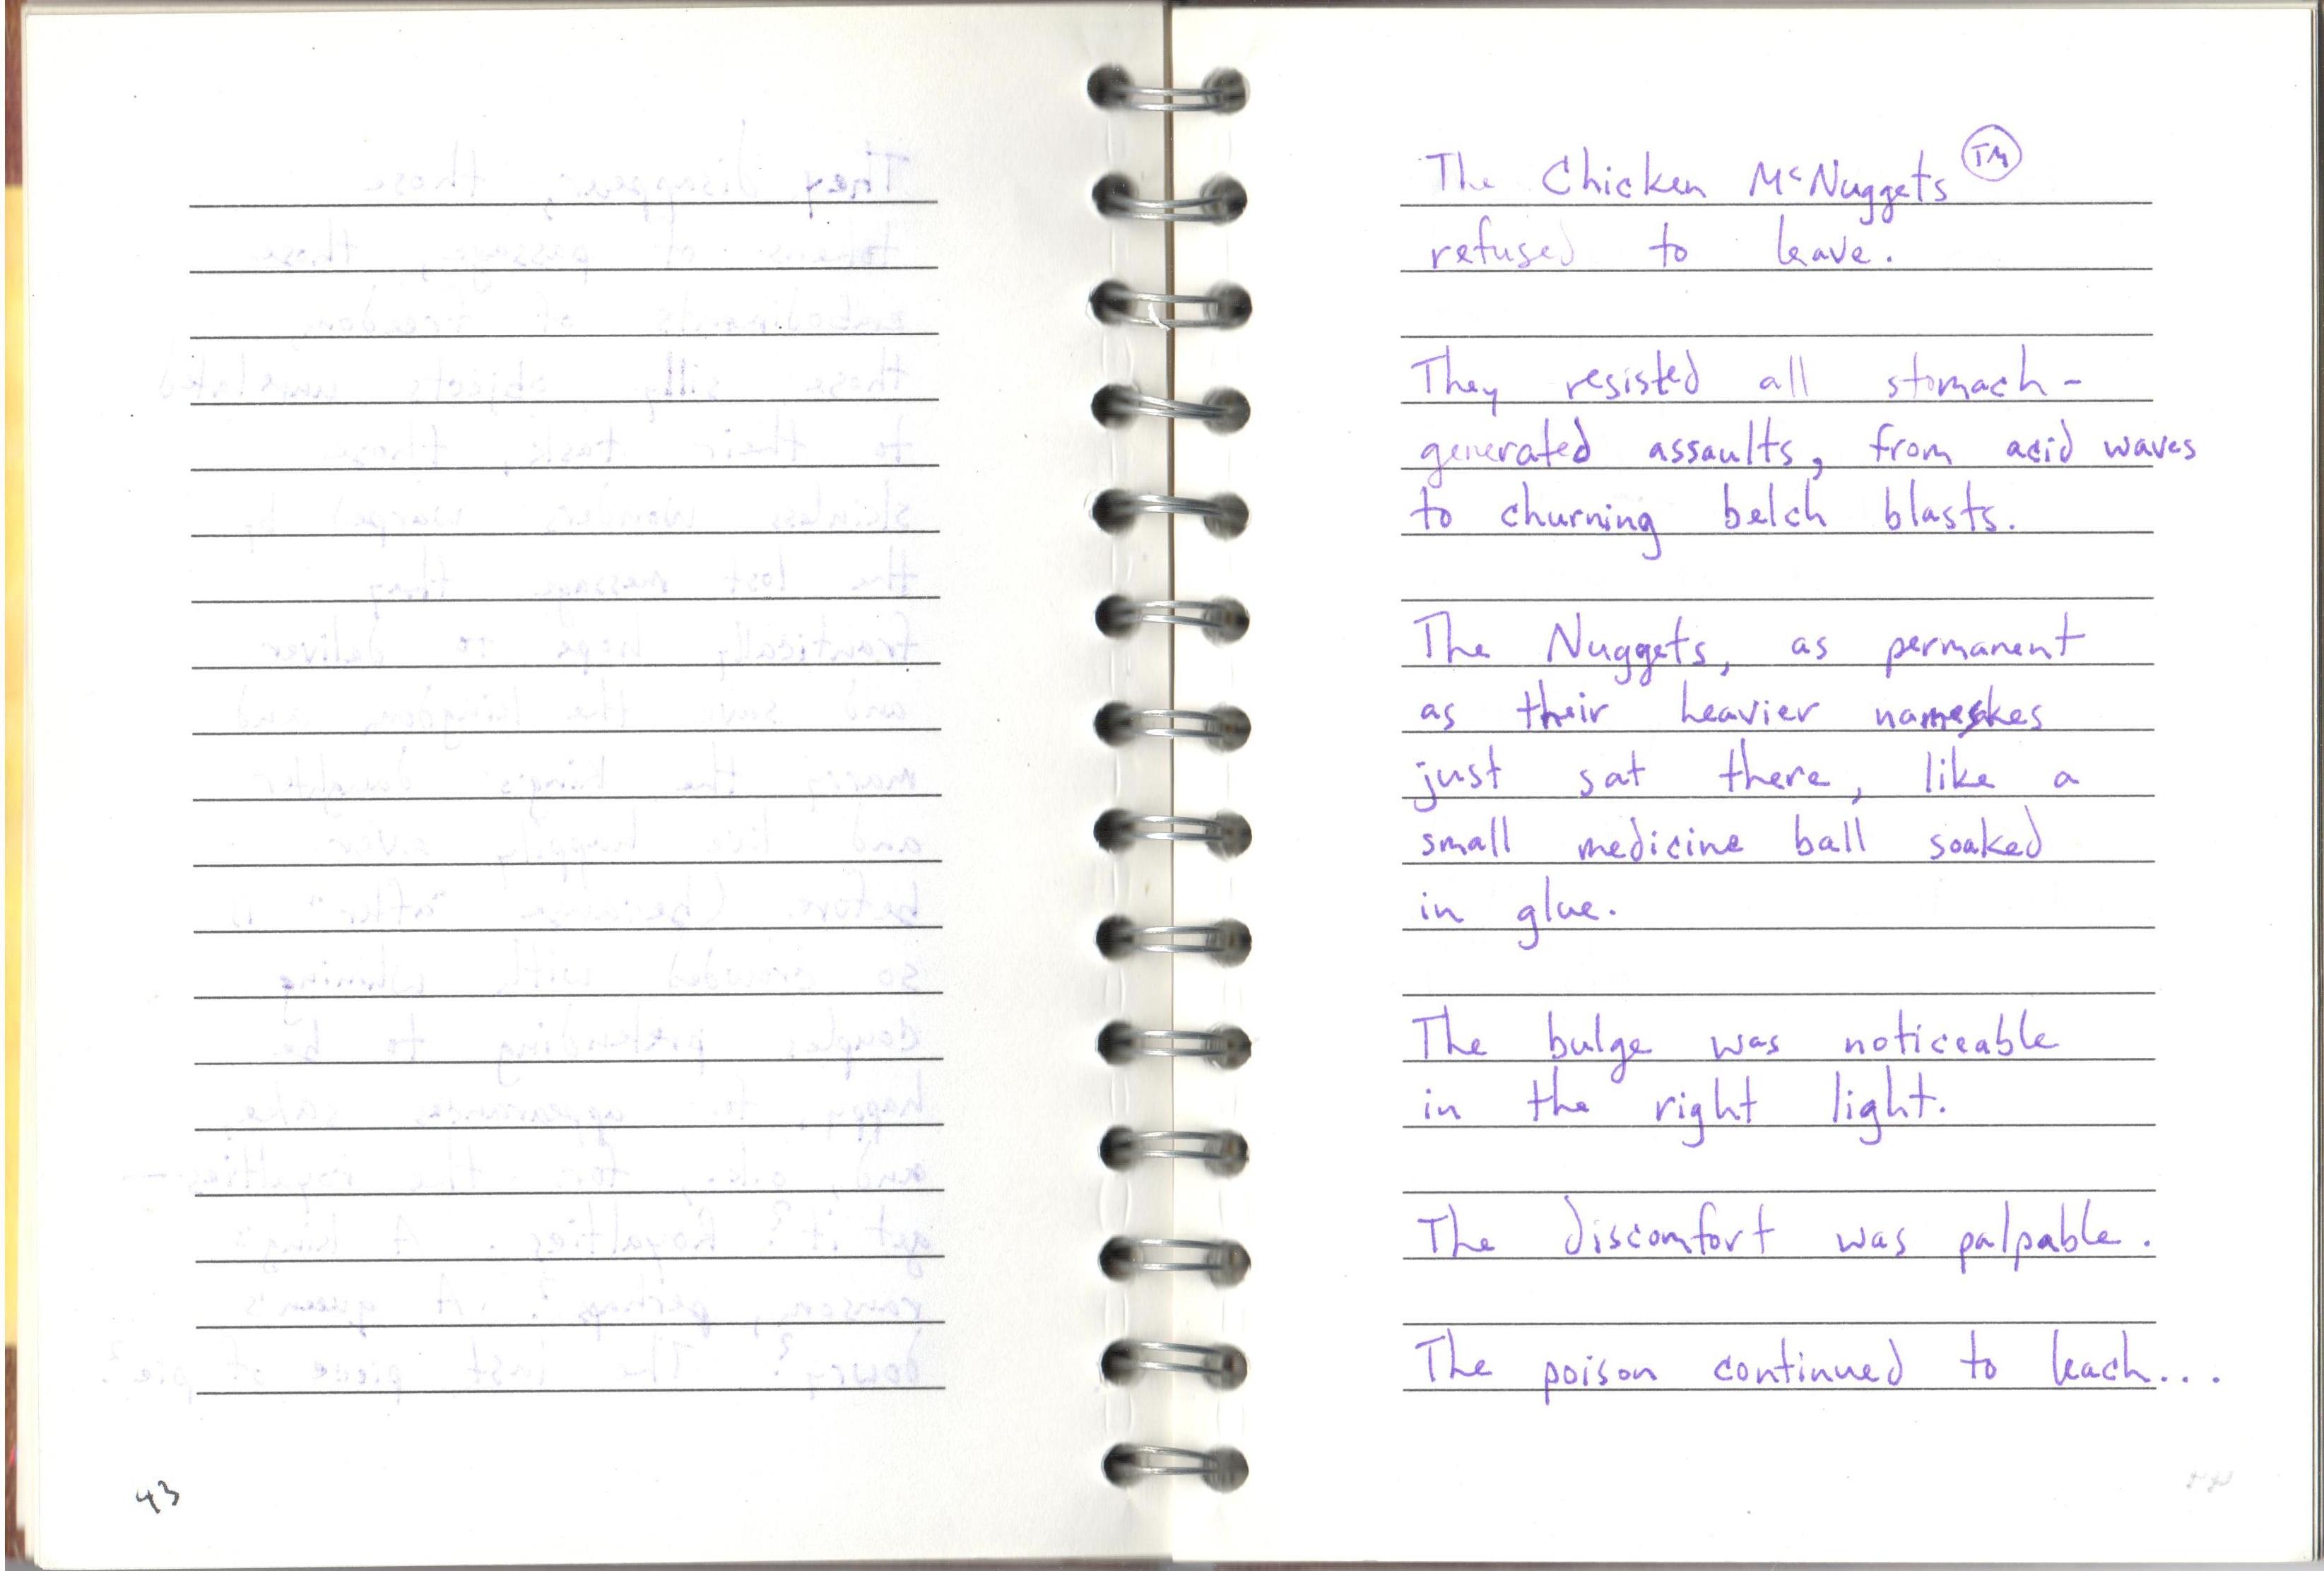 43
The Chicken McNuggets TM
refused to leave.
They resisted all stomach-
generated assaults, from acid waves
to churning belch blasts.
The Nuggets, as permanent
as their heavier nameskes
just sat there, like a
small medicine ball soaked
in glue.
The bulge was noticeable
in the right light.
The discomfort was palpable.
The poison continued to leach...